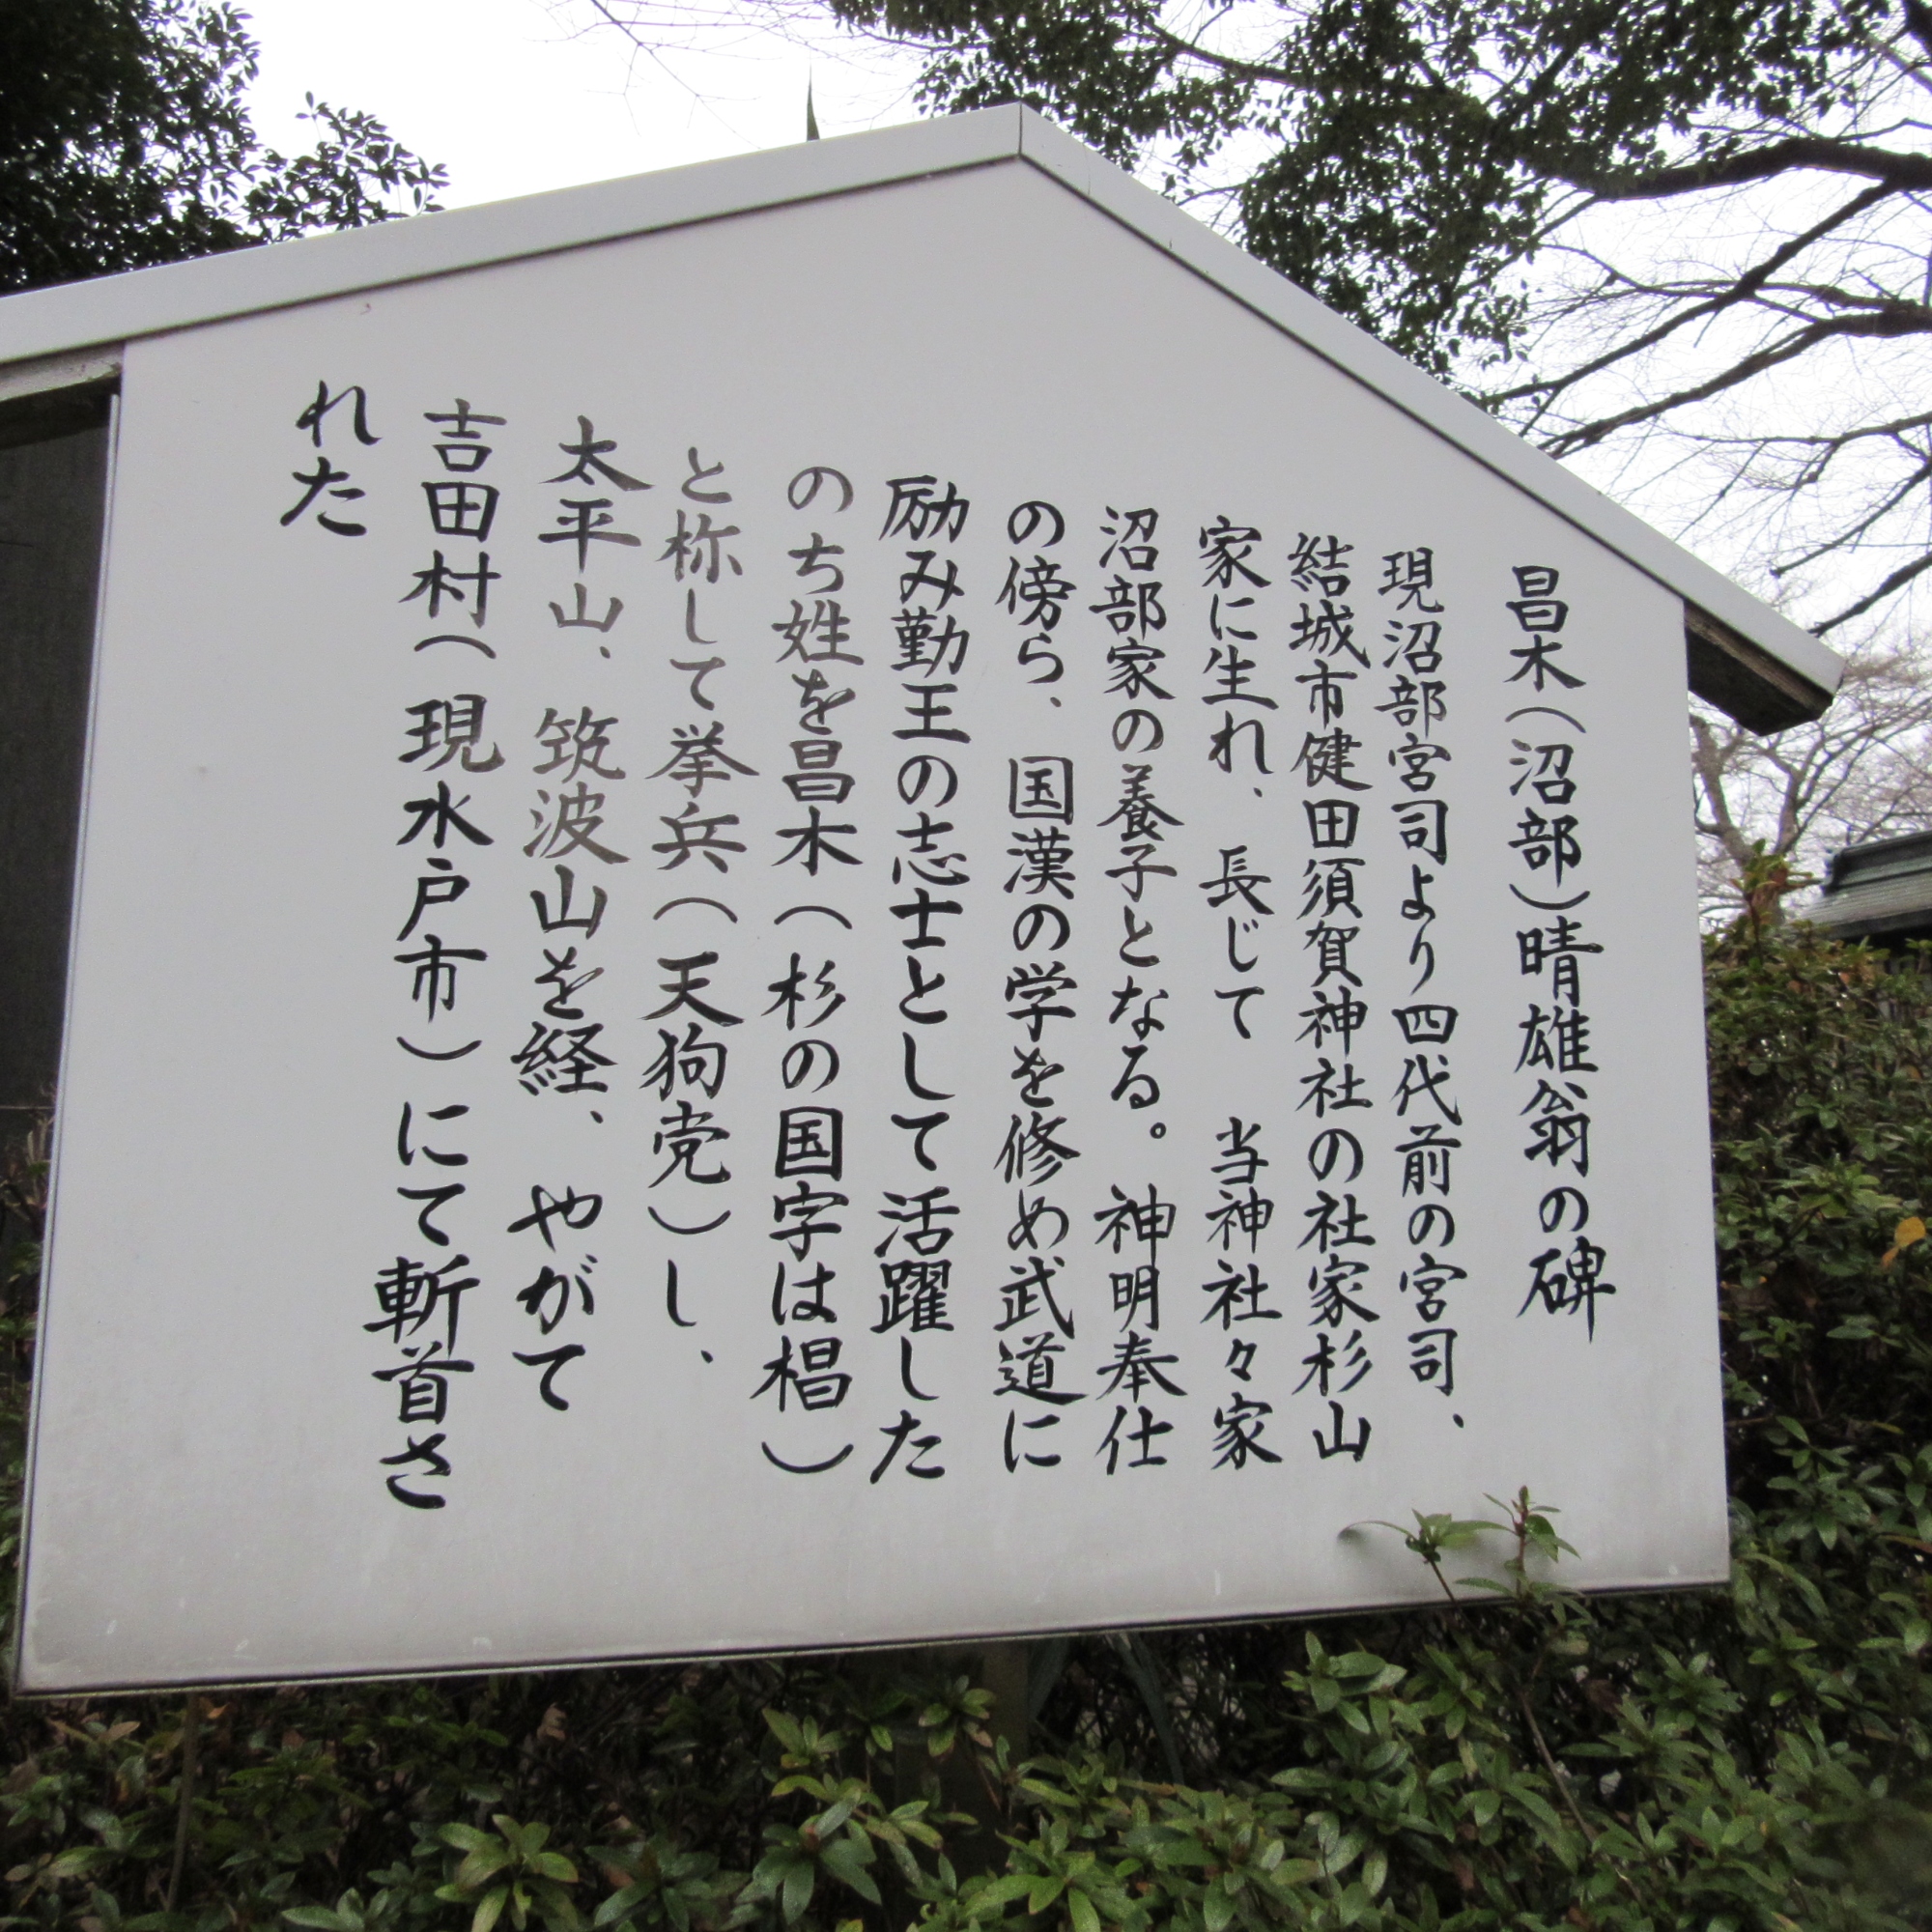 昌木（沼部）晴雄翁の碑
現沼部宮司より四代前の宮司、
結城市健田須賀神社の社家杉山
家に生れ、長じて　当神社々家
沼部家の養子となる。神明奉仕
の傍ら、国漢の学を修め武道に
励み勤王の志士として活躍した
のち姓を昌木（杉の国字は椙）
と称して挙兵（天狗党）し、
太平山、筑波山を経、やがて
吉田村（現水戸市）にて斬首さ
れた